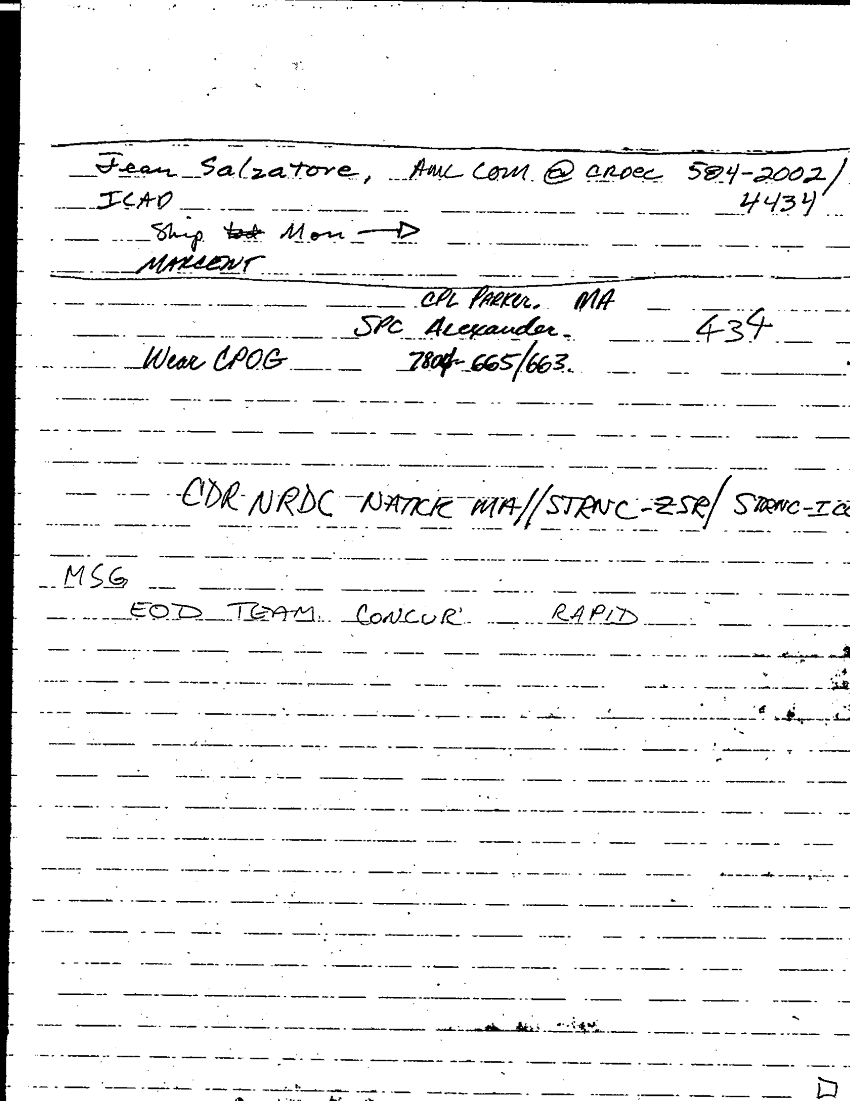 Jean Salzatore, AMC COM @ CRDEC 584-2002/
ICAD 4434
Ship Mon →
MARCENT
CPL PARKER. MA
SPC Alexander. 434
Wear CPOG 780 - 665/663.
CDR NRDC NATICK MA//STRNC-ZSR/ STRNC-ICC
MSG
EOD TEAM CONCUR RAPID